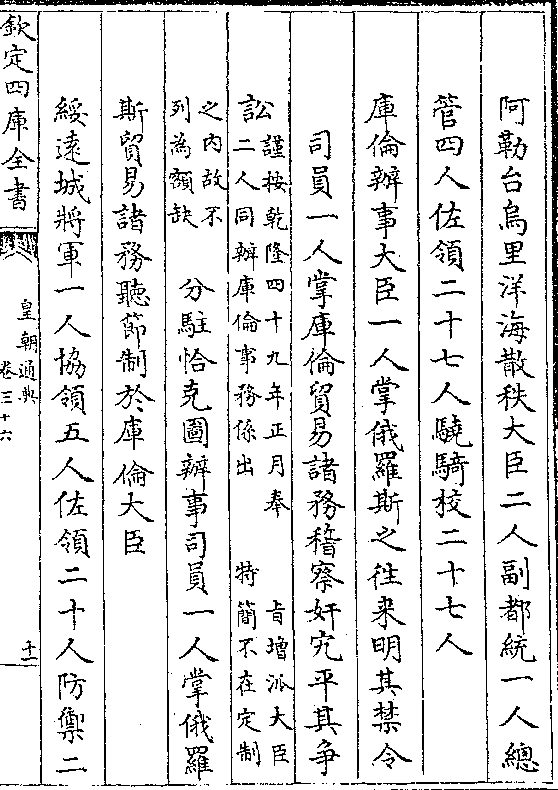 阿勒台烏里洋海散秩大臣二人副都統一人總
管四人佐領二十七人驍騎校二十七人
庫倫辦事大臣一人掌俄羅斯之往来明其禁令
司員一人掌庫倫貿易諸務稽察奸宄平其争
訟
謹按乾隆四十九年正月奉
旨增派大臣
二人同辦庫倫事務係出
特簡不在定制
之内故不
列為額缺
分駐恰克圖辦事司員一人掌俄羅
斯貿易諸務聽節制於庫倫大臣
綏遠城將軍一人協領五人佐領二十人防禦二
欽定四庫全書
皇朝通典
卷三十六